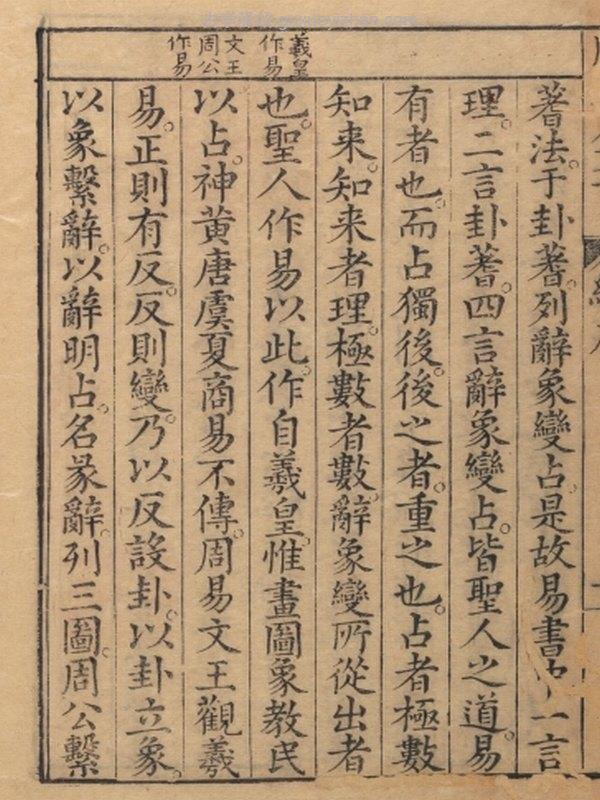 羲皇
作易
文王
周公
作易
蓍法于卦蓍。列辭象變占。是故易書一言
理。二言卦蓍。四言辭象變占。皆聖人之道。易
有者也。而占獨後。後之者。重之也。占者極數
知來。知來者理。極數者數。辭象變所從出者
也。聖人作易以此。作自羲皇。惟畫圖象教民
以占。神黄唐虞夏商易不傳。周易文王觀羲
易。正則有反。反則變。乃以反設卦。以卦立象。
以象繫辭。以辭明占。名彖辭。列三圖。周公繫